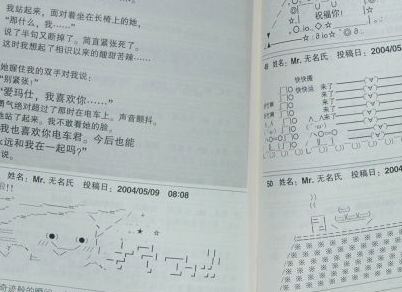 我站起来，面对着坐在长椅上的她，
“那什么，我……”
说了半句又断掉了。简直紧张死了。
这时我想起了相识以来的酸甜苦辣……
她握住我的双手对我说：
“别紧张！”
“爱玛仕，我喜欢你……”
勇气绝对超过了那时在电车上。声音颤抖。
她站了起来。我不敢看她的脸。
我也喜欢你电车君。今后也能
永远和我在一起吗？”
说。
姓名：Mr. 无名氏 投稿日：2004/05/09 08:08
祝福你！
姓名：Mr. 无名氏 投稿日：2004/05
快快搬
快快运
来了
来了
来了
来了
50 姓名：Mr. 无名氏 投稿日：2004